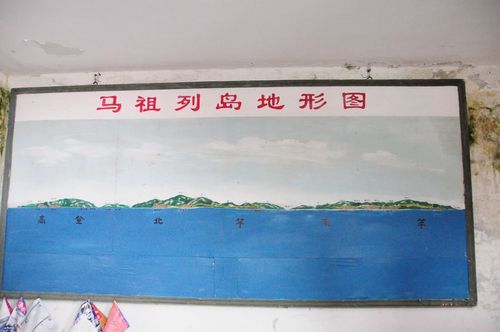 马祖列岛地形图
高登 北竿 南竿